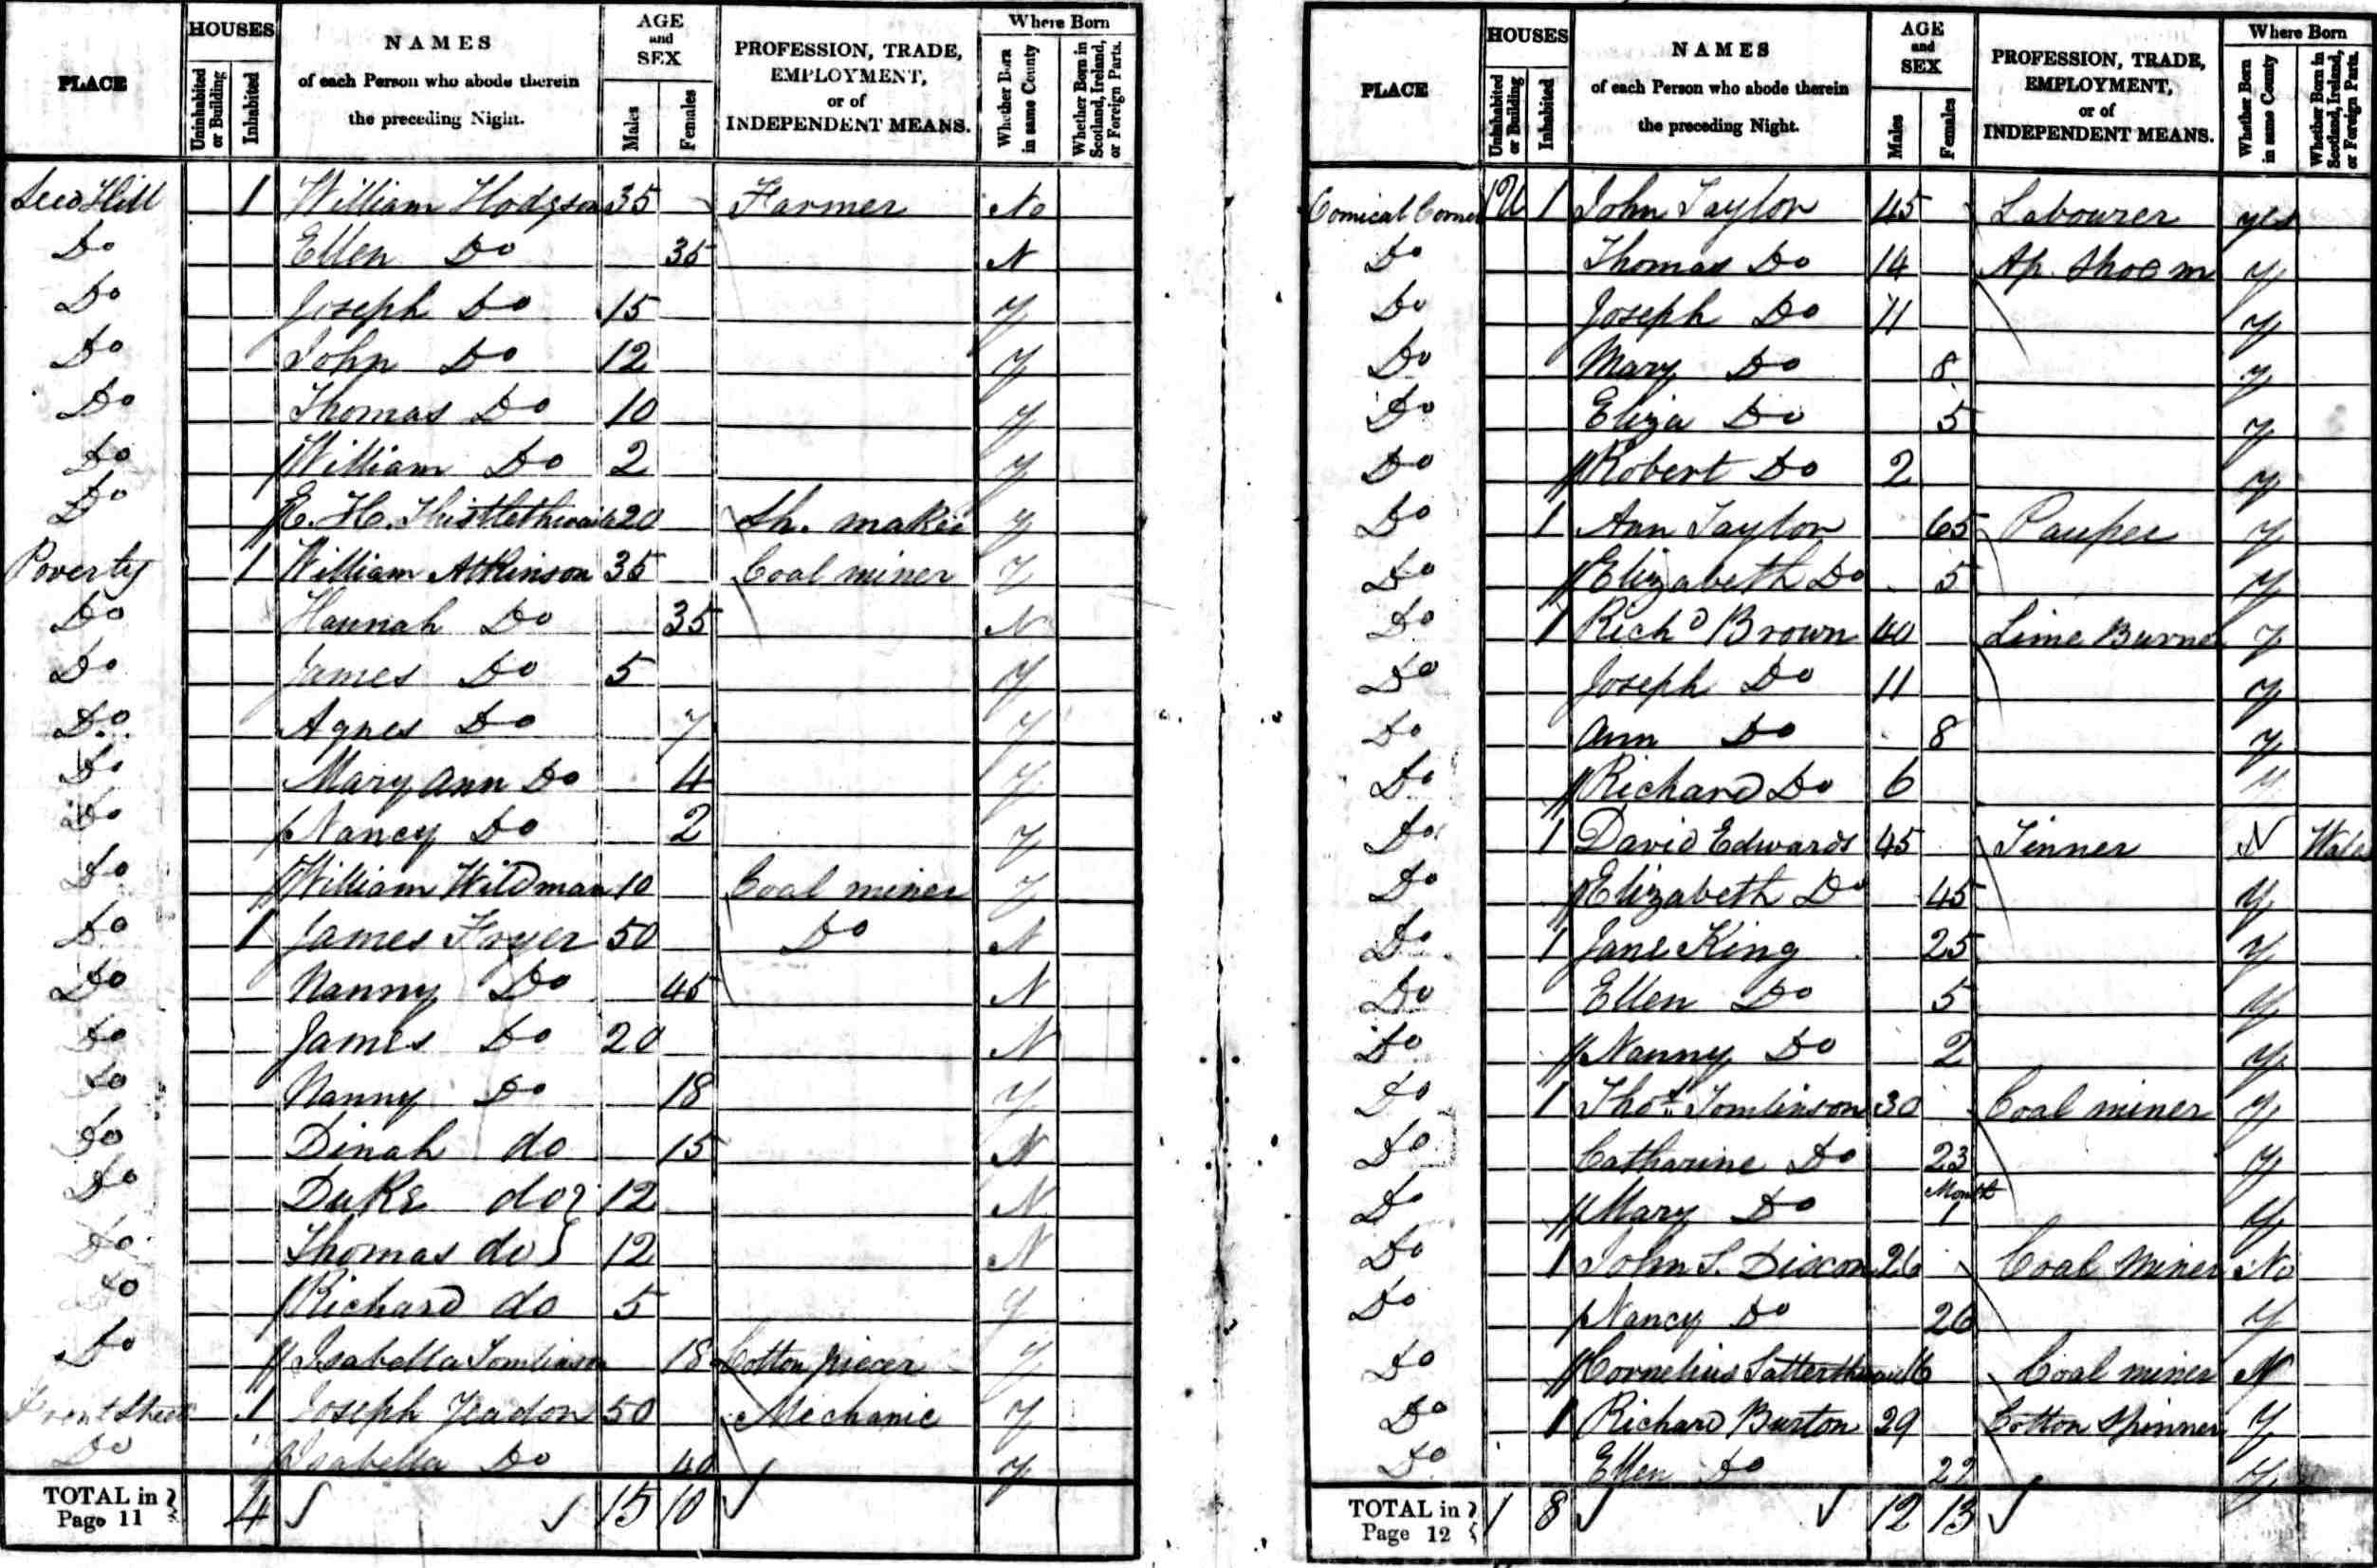 PLACE HOUSES Uninhabited or Building Inhabited NAMES of each Person who abode therein the preceding Night. AGE and SEX Males Females PROFESSION, TRADE, EMPLOYMENT, or of INDEPENDENT MEANS. Where Born Whether Born in same County Whether Born in Scotland, Ireland, or Foreign Parts.
Seed Hill 1 William Hodgson 35 Farmer No
Do Ellen Do 35 N
Do Joseph Do 15 y
Do John Do 12 y
Do Thomas Do 10 y
Do William Do 2 y
Do E. H. Thistlethwaite 20 Sh. maker y
Poverty 1 William Atkinson 35 Coal miner y
Do Hannah Do 35 N
Do James Do 5 y
Do Agnes Do 7 y
Do Mary Ann Do 4 y
Do Nancy Do 2 y
Do William Wildman 10 Coal miner y
Do 1 James Fryer 50 Do N
Do Nanny Do 45 N
Do James Do 20 N
Do Nanny Do 18 y
Do Dinah do 15 N
Do Duke do 12 N
Do Thomas do 12 N
Do Richard do 5 y
Do Isabella Tomlinson 18 Cotton piecer y
Front Street 1 Joseph Yeadon 50 Mechanic y
Do Isabella Do 40 y
TOTAL in Page 11 4 15 10
PLACE HOUSES Uninhabited or Building Inhabited NAMES of each Person who abode therein the preceding Night. AGE and SEX Males Females PROFESSION, TRADE, EMPLOYMENT, or of INDEPENDENT MEANS. Where Born Whether Born in same County Whether Born in Scotland, Ireland, or Foreign Parts.
Comical Corner 1U 1 John Taylor 45 Labourer yes
Do Thomas Do 14 Ap. Shoe m y
Do Joseph Do 11 y
Do Mary Do 8 y
Do Eliza Do 5 y
Do Robert Do 2 y
Do 1 Ann Taylor 65 Pauper y
Do Elizabeth Do 5 y
Do 1 Richd Brown 40 Lime Burner y
Do Joseph Do 11 y
Do Ann Do 8 y
Do Richard Do 6 y
Do 1 David Edwards 45 Tinner N Wales
Do Elizabeth Do 45 y
Do 1 Jane King 25 y
Do Ellen Do 5 y
Do Nanny Do 2 y
Do 1 Thos. Tomlinson 30 Coal miner y
Do Catharine Do 23 y
Do Mary Do Month 1 y
Do 1 John S. Dixon 26 Coal Miner No
Do Nancy Do 26 y
Do Cornelius Satterthwait 16 Coal miner N
Do 1 Richard Burton 29 Cotton Spinner y
Do Ellen Do 22 y
TOTAL in Page 12 1 8 12 13